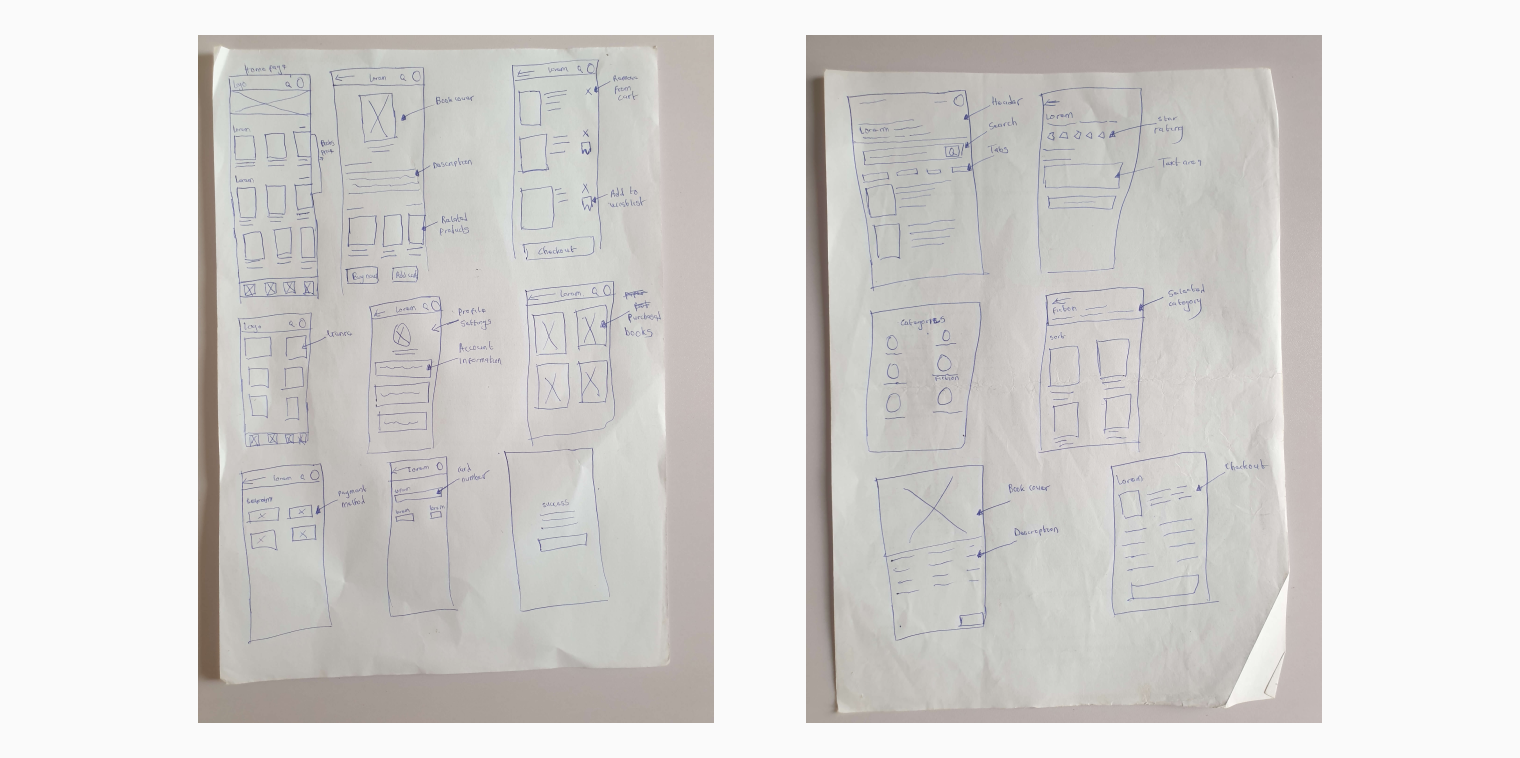 Home page
logo
Lorem
Lorem
Lorem
Book cover
Description
Related
products
Buy now
Lorem
Remove
from
cart
Add to
wishlist
Checkout
Icons
Lorem
Profile
settings
Account
information
Lorem
Purchased
books
Lorem
Payment
method
Lorem
card
number
Lorem
Lorem
Lorem
success
Lorem
Header
Search
Tabs
Lorem
star
rating
Text area
Categories
fiction
Fiction
sort
Selected
category
Book cover
Description
Lorem
Checkout